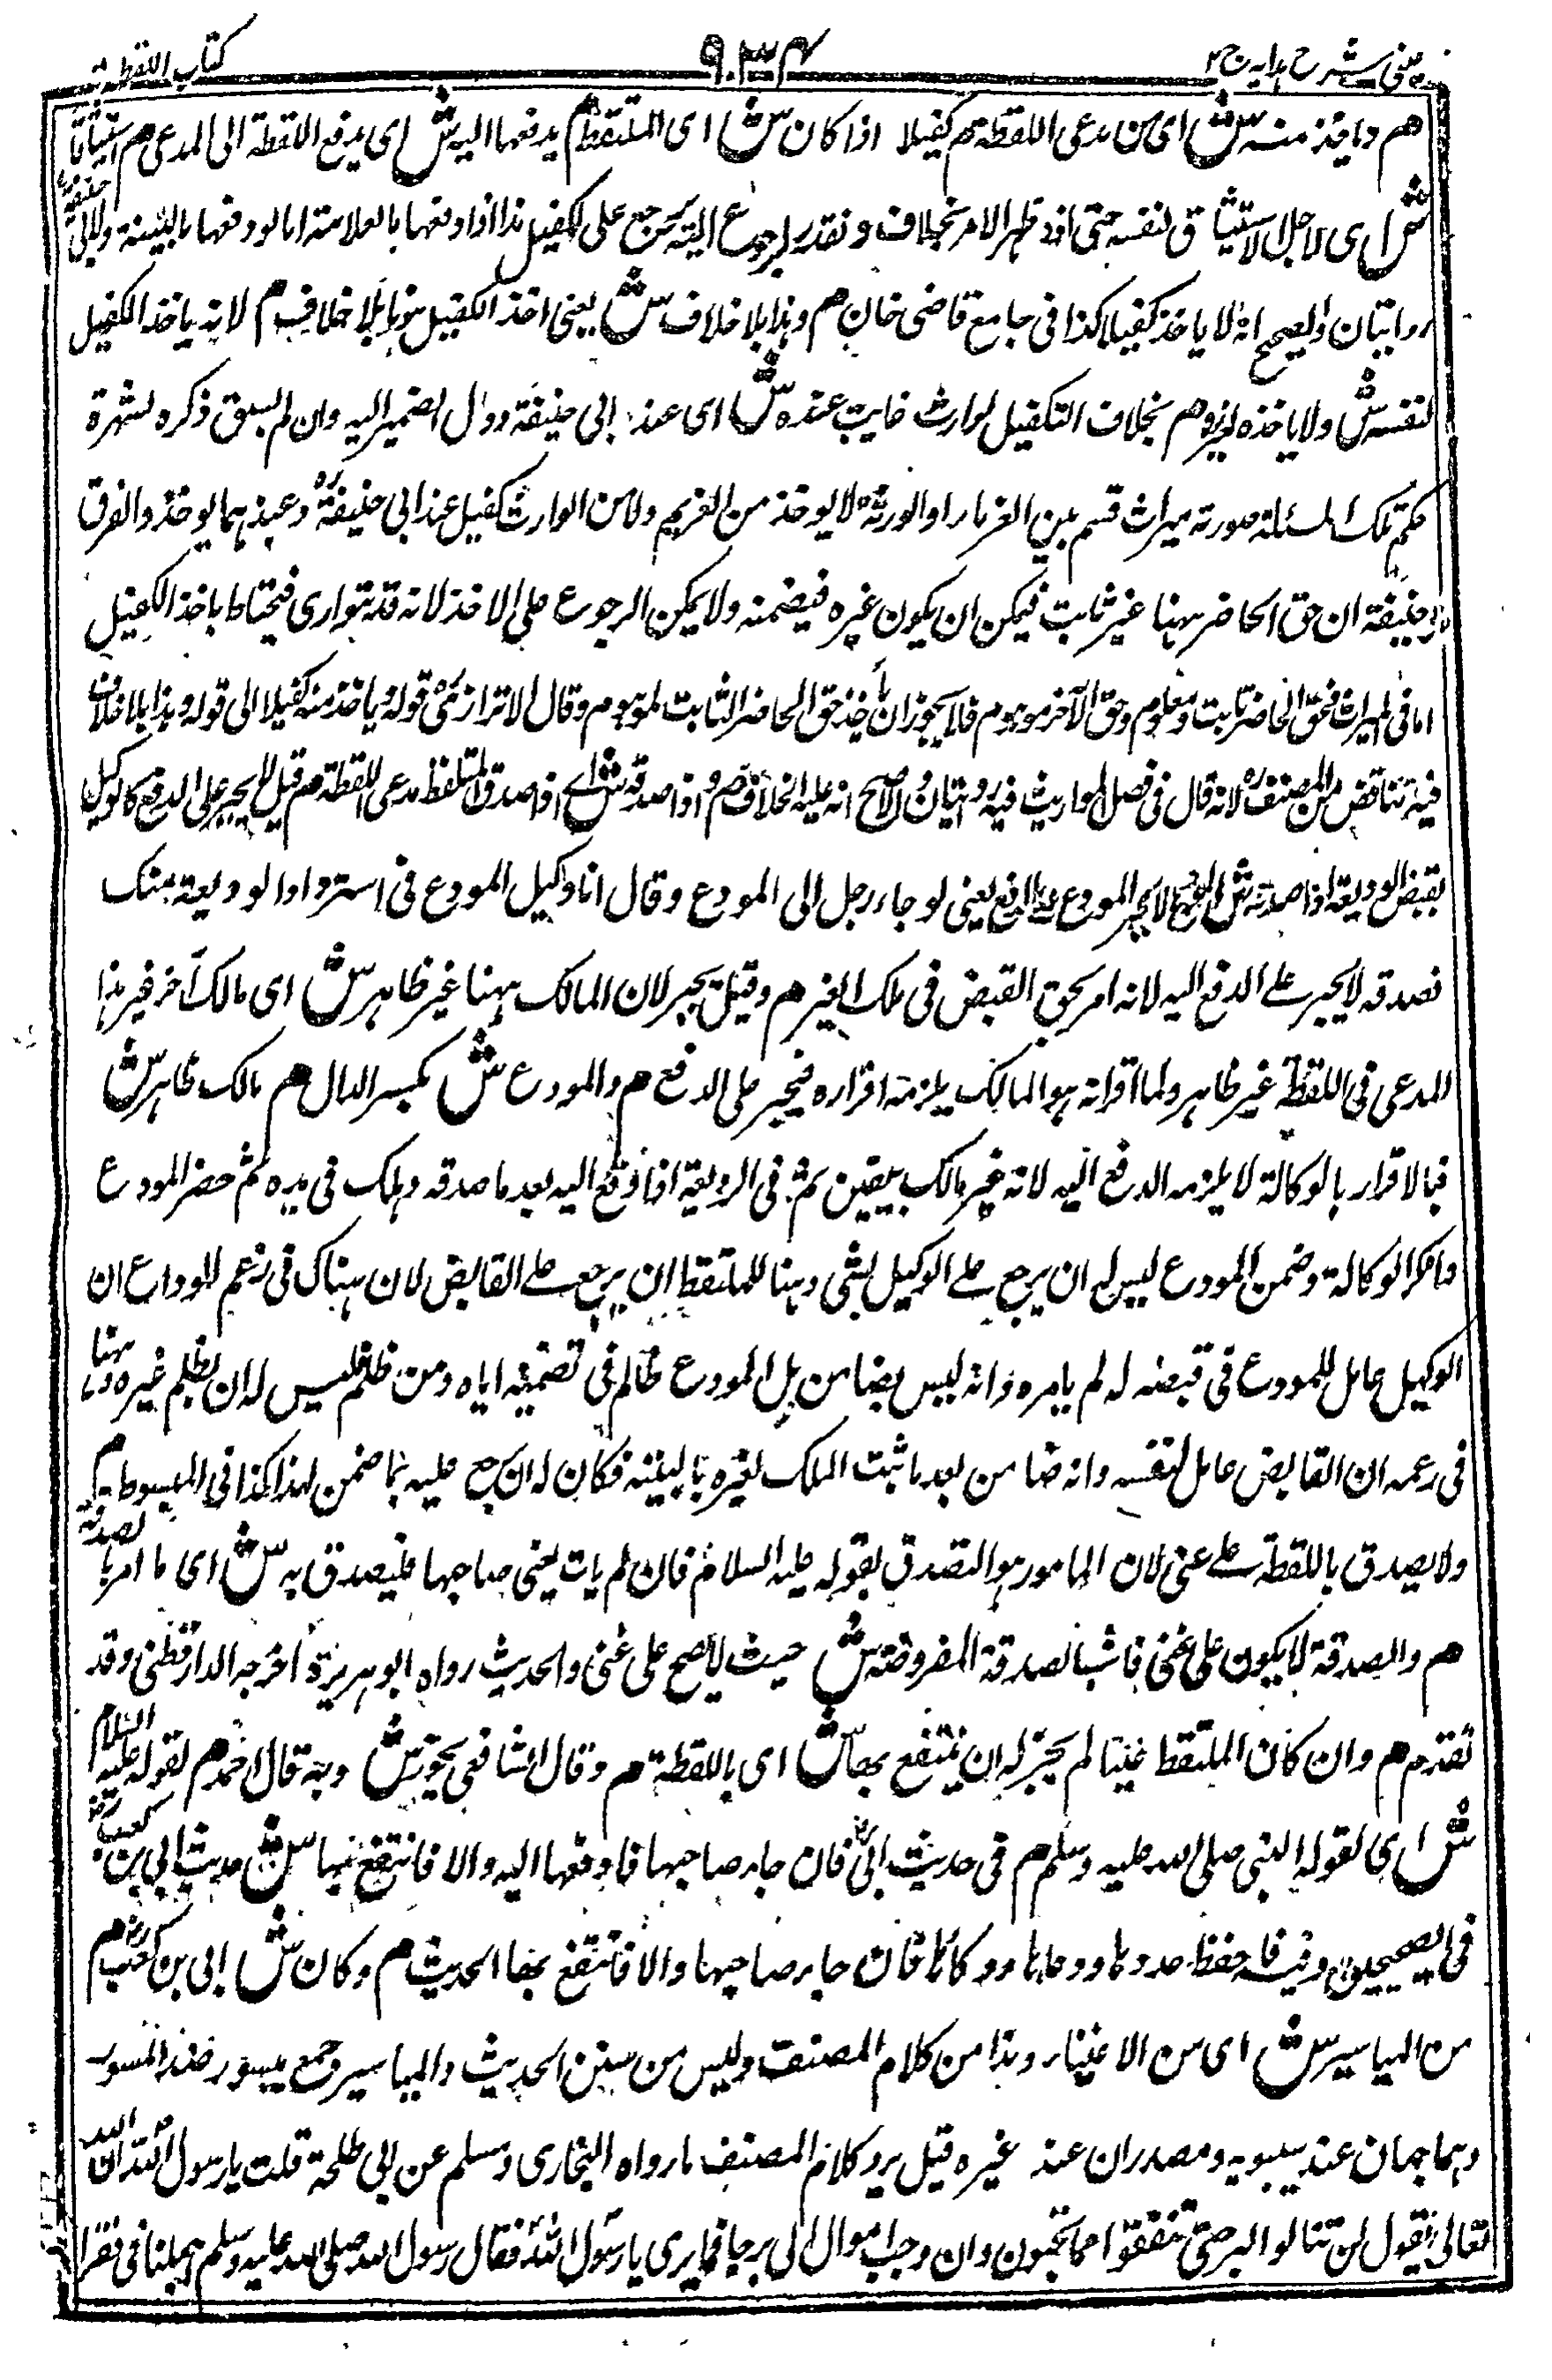 عینی شرح ہدایہ ج ۲
۹۳۴
کتاب اللقطة
هم ویاخذ منه ش ای من مدعی اللقطة هم کفیلا اذا کان ش ای الملتقط هم یدفعها الیه ش ای یدفع اللقطة الی المدعی هم استیثاقا
ش ای لاجل الاستیثاق لنفسه حتی اذا ظهر الامر بخلافه وتعذر الرجوع الیه یرجع علی الکفیل هذا اذا دفعها بالعلامة اما لو دفعها بالبینة ولابی حنیفة
روایتان والصحیح انه لا یاخذ کفیلا کذا فی جامع قاضی خان هم وهذا بلا خلاف ش یعنی اخذ الکفیل هنا بلا خلاف هم لانه یاخذ الکفیل
لنفسه ش ولا یاخذه لغیره هم بخلاف التکفیل لوارث غایب عنده ش ای عند ابی حنیفة و الضمیر الیه وان لم یسبق ذکره لشهرة
حکم تلک المسئلة صورته میراث قسم بین الغرماء او الورثة لا یوخذ من الغریم ولا من الوارث کفیل عند ابی حنیفة رہ وعندهما یوخذ والفرق
لابی حنیفة ان حق الحاضر ههنا غیر ثابت فیمکن ان یکون غیره فیضمنه ولا یمکن الرجوع علی الاخذ لانه قد یتواری فیحتاط باخذ الکفیل
اما فی المیراث فحق الحاضر ثابت ومعلوم وحق الآخر موهوم فلا یجوز ان یأخذ حق الحاضر الثابت لموهوم وقال الاترازی رہ قوله ویاخذ منه کفیلا الی قوله وهذا بلا خلاف
فیه تناقض من المصنف رہ لانه قال فی فصل المواریث فیه روایتان والاصح انه علی الخلاف هم واذا صدقه ش ای اذا صدق الملتقط مدعی اللقطة هم قیل لا یجبر علی الدفع کالوکیل
بقبض الودیعة اذا صدقه ش المودع لا یجبر المودع علی الدفع یعنی لو جاء رجل الی المودع وقال انا وکیل المودع فی استرداد الودیعة منک
فصدقه لا یجبر علی الدفع الیه لانه امر بحق القبض فی ملک الغیر هم وقیل یجبر لان المالک ههنا غیر ظاهر ش ای مالک آخر غیر هذا
المدعی فی اللقطة غیر ظاهر ولما اقر انه هو المالک یلزمه اقراره فیجبر علی الدفع هم والمودع ش بکسر الدال هم مالک ظاهر ش
فبالاقرار بالوکالة لا یلزمه الدفع الیه لانه غیر مالک بیقین ثم فی الودیعة اذا دفع الیه بعد ما صدقه وهلک فی یده ثم حضر المودع
وانکر الوکالة وضمن المودع لیس له ان یرجع علی الوکیل بشی وهنا للملتقط ان یرجع علی القابض لان هناک فی زعم المودع ان
الوکیل عامل للمودع فی قبضه له لم یامره وانه لیس بضامن بل المودع ظالم فی تضمینه ایاه ومن ظلم فلیس له ان یظلم غیره وههنا
فی زعمه ان القابض عامل لنفسه وانه ضامن بعد ما ثبت الملک لغیره بالبینة فکان له ان یرجع علیه بما ضمن لهذا کذا فی المبسوط هم
ولا یصدق باللقطة علی غنی لان المامور هو التصدق لقوله علیه السلام فان لم یات یعنی صاحبها فلیصدق به ش ای ما امر بالصدقة
هم والصدقة لا یکون علی غنی فاشبه الصدقة المفروضة ش حیث لا یصح علی غنی والحدیث رواه ابو هریرة اخرجه الدارقطنی وقد
تقدم هم وان کان الملتقط غنیا لم یجز له ان ینتفع بها ش ای باللقطة هم وقال الشافعی یجوز ش وبه قال احمد هم لقوله علیه السلام
ش ای لقوله النبی صلی الله علیه وسلم هم فی حدیث ابی رض فان جاء صاحبها فادفعها الیه والا فانتفع بها ش حدیث ابی بن کعب رض
فی الصحیحین وفیه فاحفظ عددها ووعاءها ووکاءها فان جاء صاحبها والا فانتفع بها الحدیث هم وکان ش ابی بن کعب رض هم
من المیاسیر ش ای من الاغنیاء وهذا من کلام المصنف ولیس من سنن الحدیث والمیاسیر جمع میسور ضد المعسور
وهما جمان عند سیبویه ومصدران عند غیره قیل یرد کلام المصنف ما رواه البخاری ومسلم عن ابی طلحة قلت یا رسول الله ان الله
تعالی یقول لن تنالوا البر حتی تنفقوا مما تحبون وان احب اموالی الی بیرحا فما یری یا رسول الله فقال رسول الله صلی الله علیه وسلم اجعلها فی فقرا